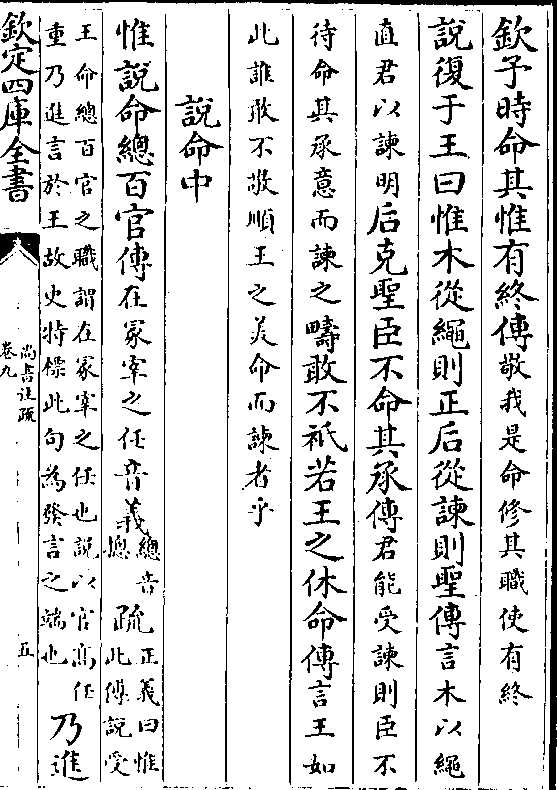 欽予時命其惟有終傳敬我是命修其職使有終
說復于王曰惟木從繩則正后從諫則聖傳言木以繩
直君以諫明后克聖臣不命其承傳君能受諫則臣不
待命其承意而諫之疇敢不祗若王之休命傳言王如
此誰敢不敬順王之美命而諫者乎
說命中
惟說命總百官傳在冡宰之任音義總音摠疏正義曰惟此傅說受
王命總百官之職謂在冡宰之任也說以官髙任
重乃進言於王故史特標此句為發言之端也乃進
欽定四庫全書
尚書注疏
卷九
五